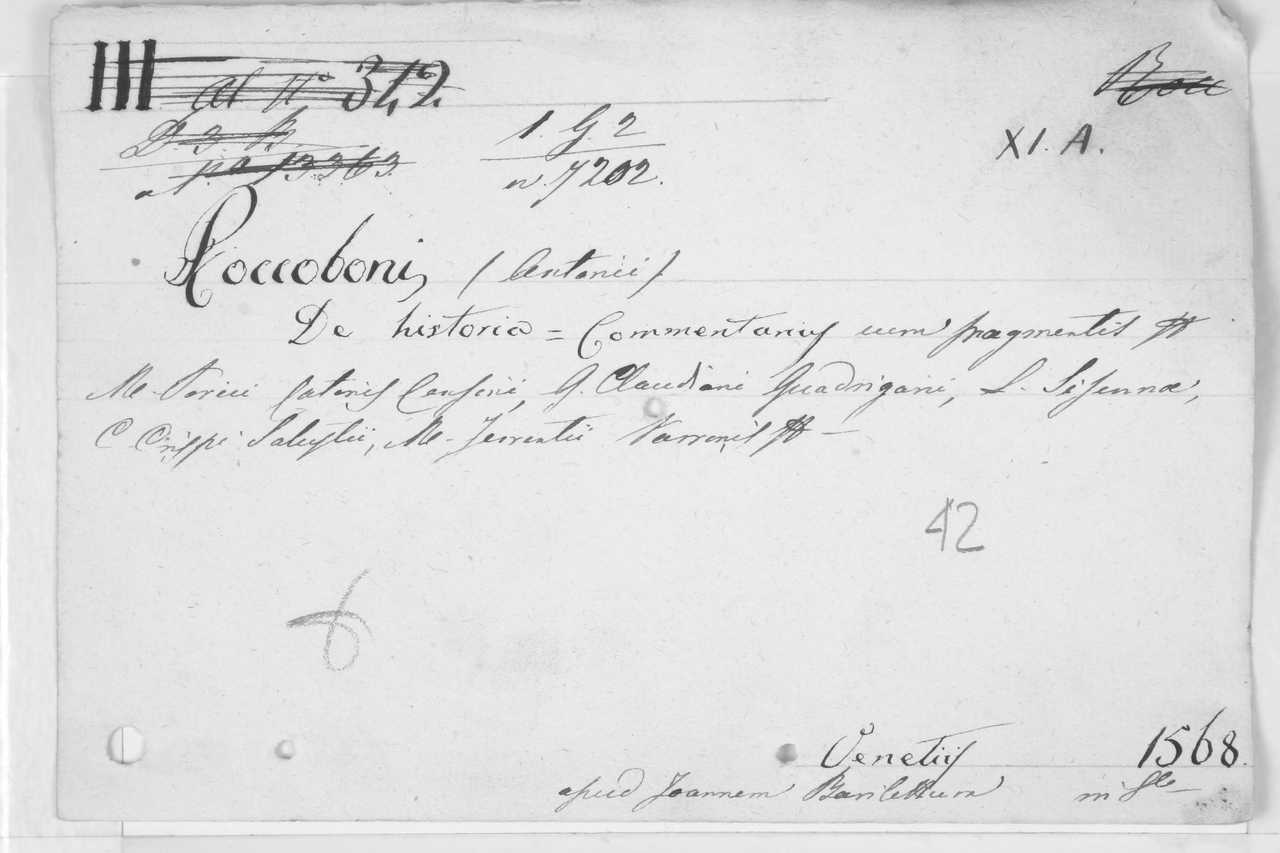 III al N° 312.
Boc
D. 3. B.
1 G 2
XI. A.
n. 7202.
Roccoboni, (Antonii)
De historia = Commentarius cum fragmentis #
M. Porcii Catonis Censorii, Q. Claudiani Quadrigarii, L. Sisennæ,
C Crispi Salustii, M. Terrentii Varronis # —
42
8
Venetiis 1568.
apud Joannem Barilettum in 8°